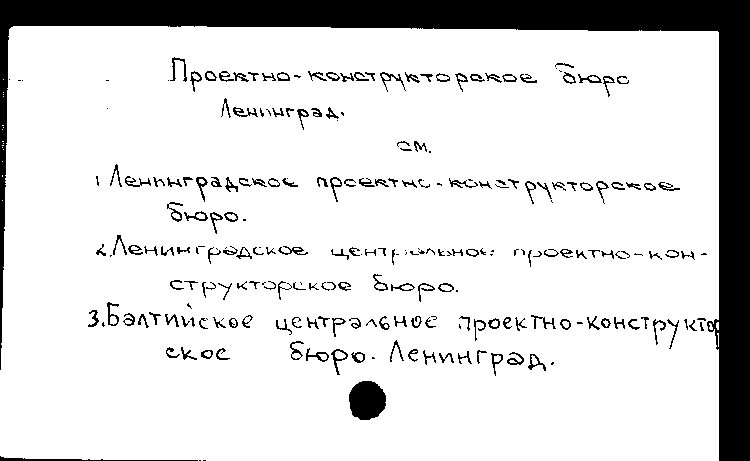 Проектно-конструкторское бюро
Ленинград.
см.
1 Ленинградское проектно-конструкторское
бюро.
2. Ленинградское центральное проектно-кон-
структорское бюро.
3. Балтийское центральное проектно-конструктор
ское бюро. Ленинград.